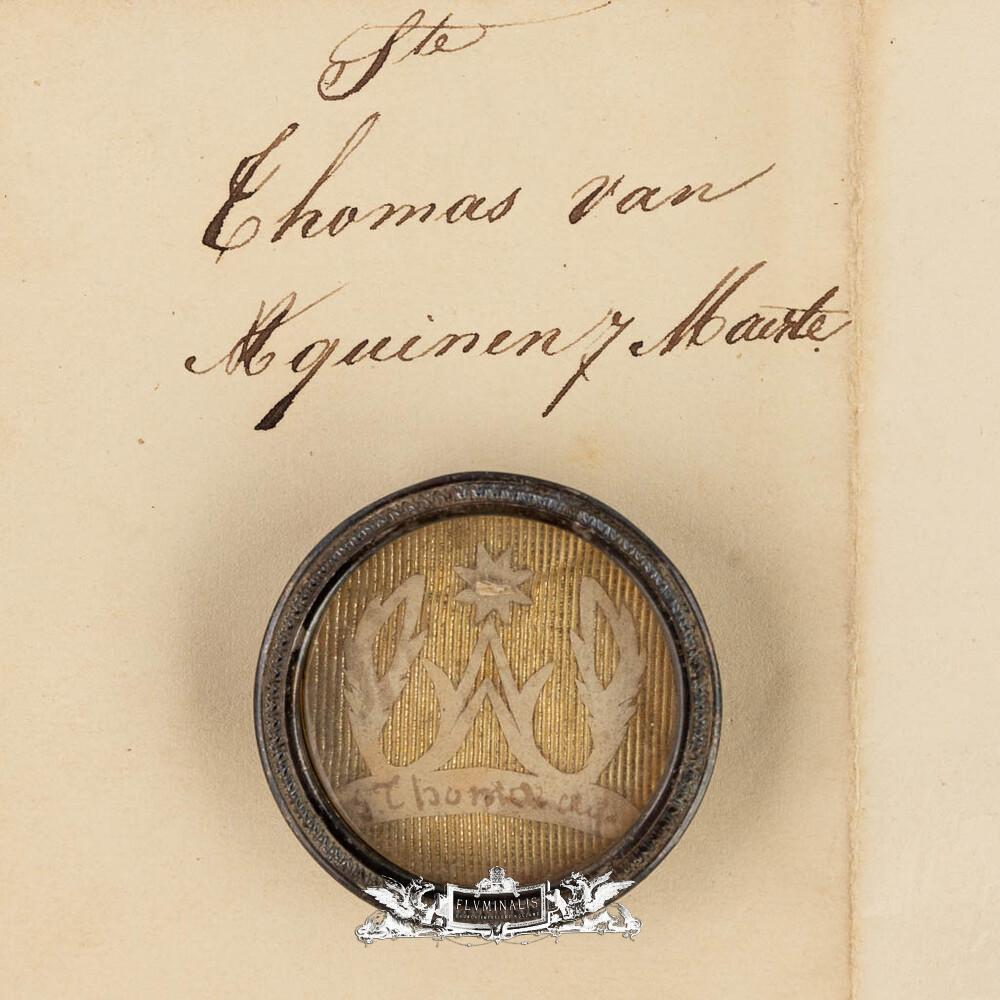 Ste
Thomas van
Aquinen 7 Maerte
S. Thomas aq.
FLVMINALIS